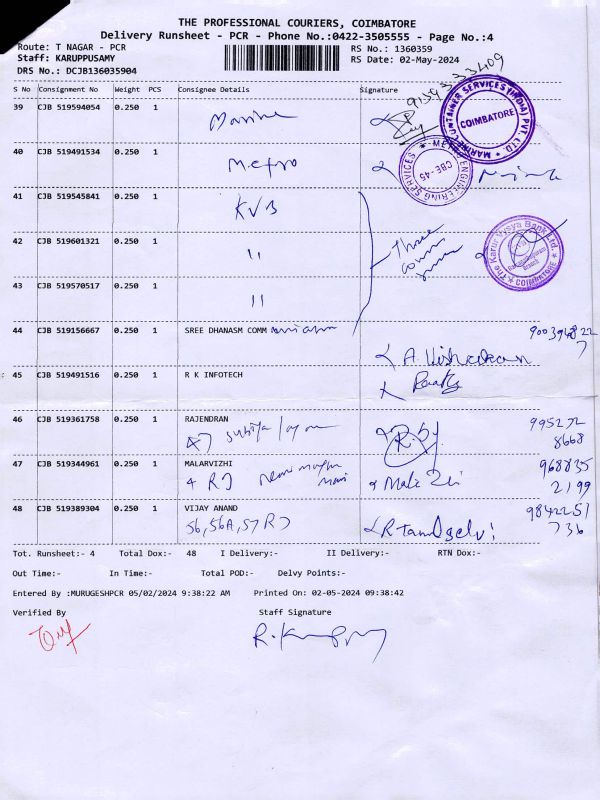 THE PROFESSIONAL COURIERS, COIMBATORE
Delivery Runsheet - PCR - Phone No.:0422-3505555 - Page No.:4
Route: T NAGAR - PCR RS No.: 1360359
Staff: KARUPPUSAMY RS Date: 02-May-2024
DRS No.: DCJB136035904
S No Consignment No Weight PCS Consignee Details Signature
39 CJB 519594054 0.250 1 Marine
MARINE CONTAINER SERVICES (INDIA) PVT. LTD. COIMBATORE
40 CJB 519491534 0.250 1 Metro
METRO ENGINEERING SERVICES CBE-45
41 CJB 519545841 0.250 1 KVB
42 CJB 519601321 0.250 1 "
The Karur Vysya Bank Ltd. COIMBATORE
43 CJB 519570517 0.250 1 "
44 CJB 519156667 0.250 1 SREE DHANASM COMM
45 CJB 519491516 0.250 1 R K INFOTECH
46 CJB 519361758 0.250 1 RAJENDRAN 995272
47 8668
47 CJB 519344961 0.250 1 MALARVIZHI 968835
4 RJ 2199
48 CJB 519389304 0.250 1 VIJAY ANAND 9842251
56, 56A, 57 RJ R tamilselvi 736
Tot. Runsheet:- 4 Total Dox:- 48 I Delivery:- II Delivery:- RTN Dox:-
Out Time:- In Time:- Total POD:- Delvy Points:-
Entered By :MURUGESHPCR 05/02/2024 9:38:22 AM Printed On: 02-05-2024 09:38:42
Verified By Staff Signature